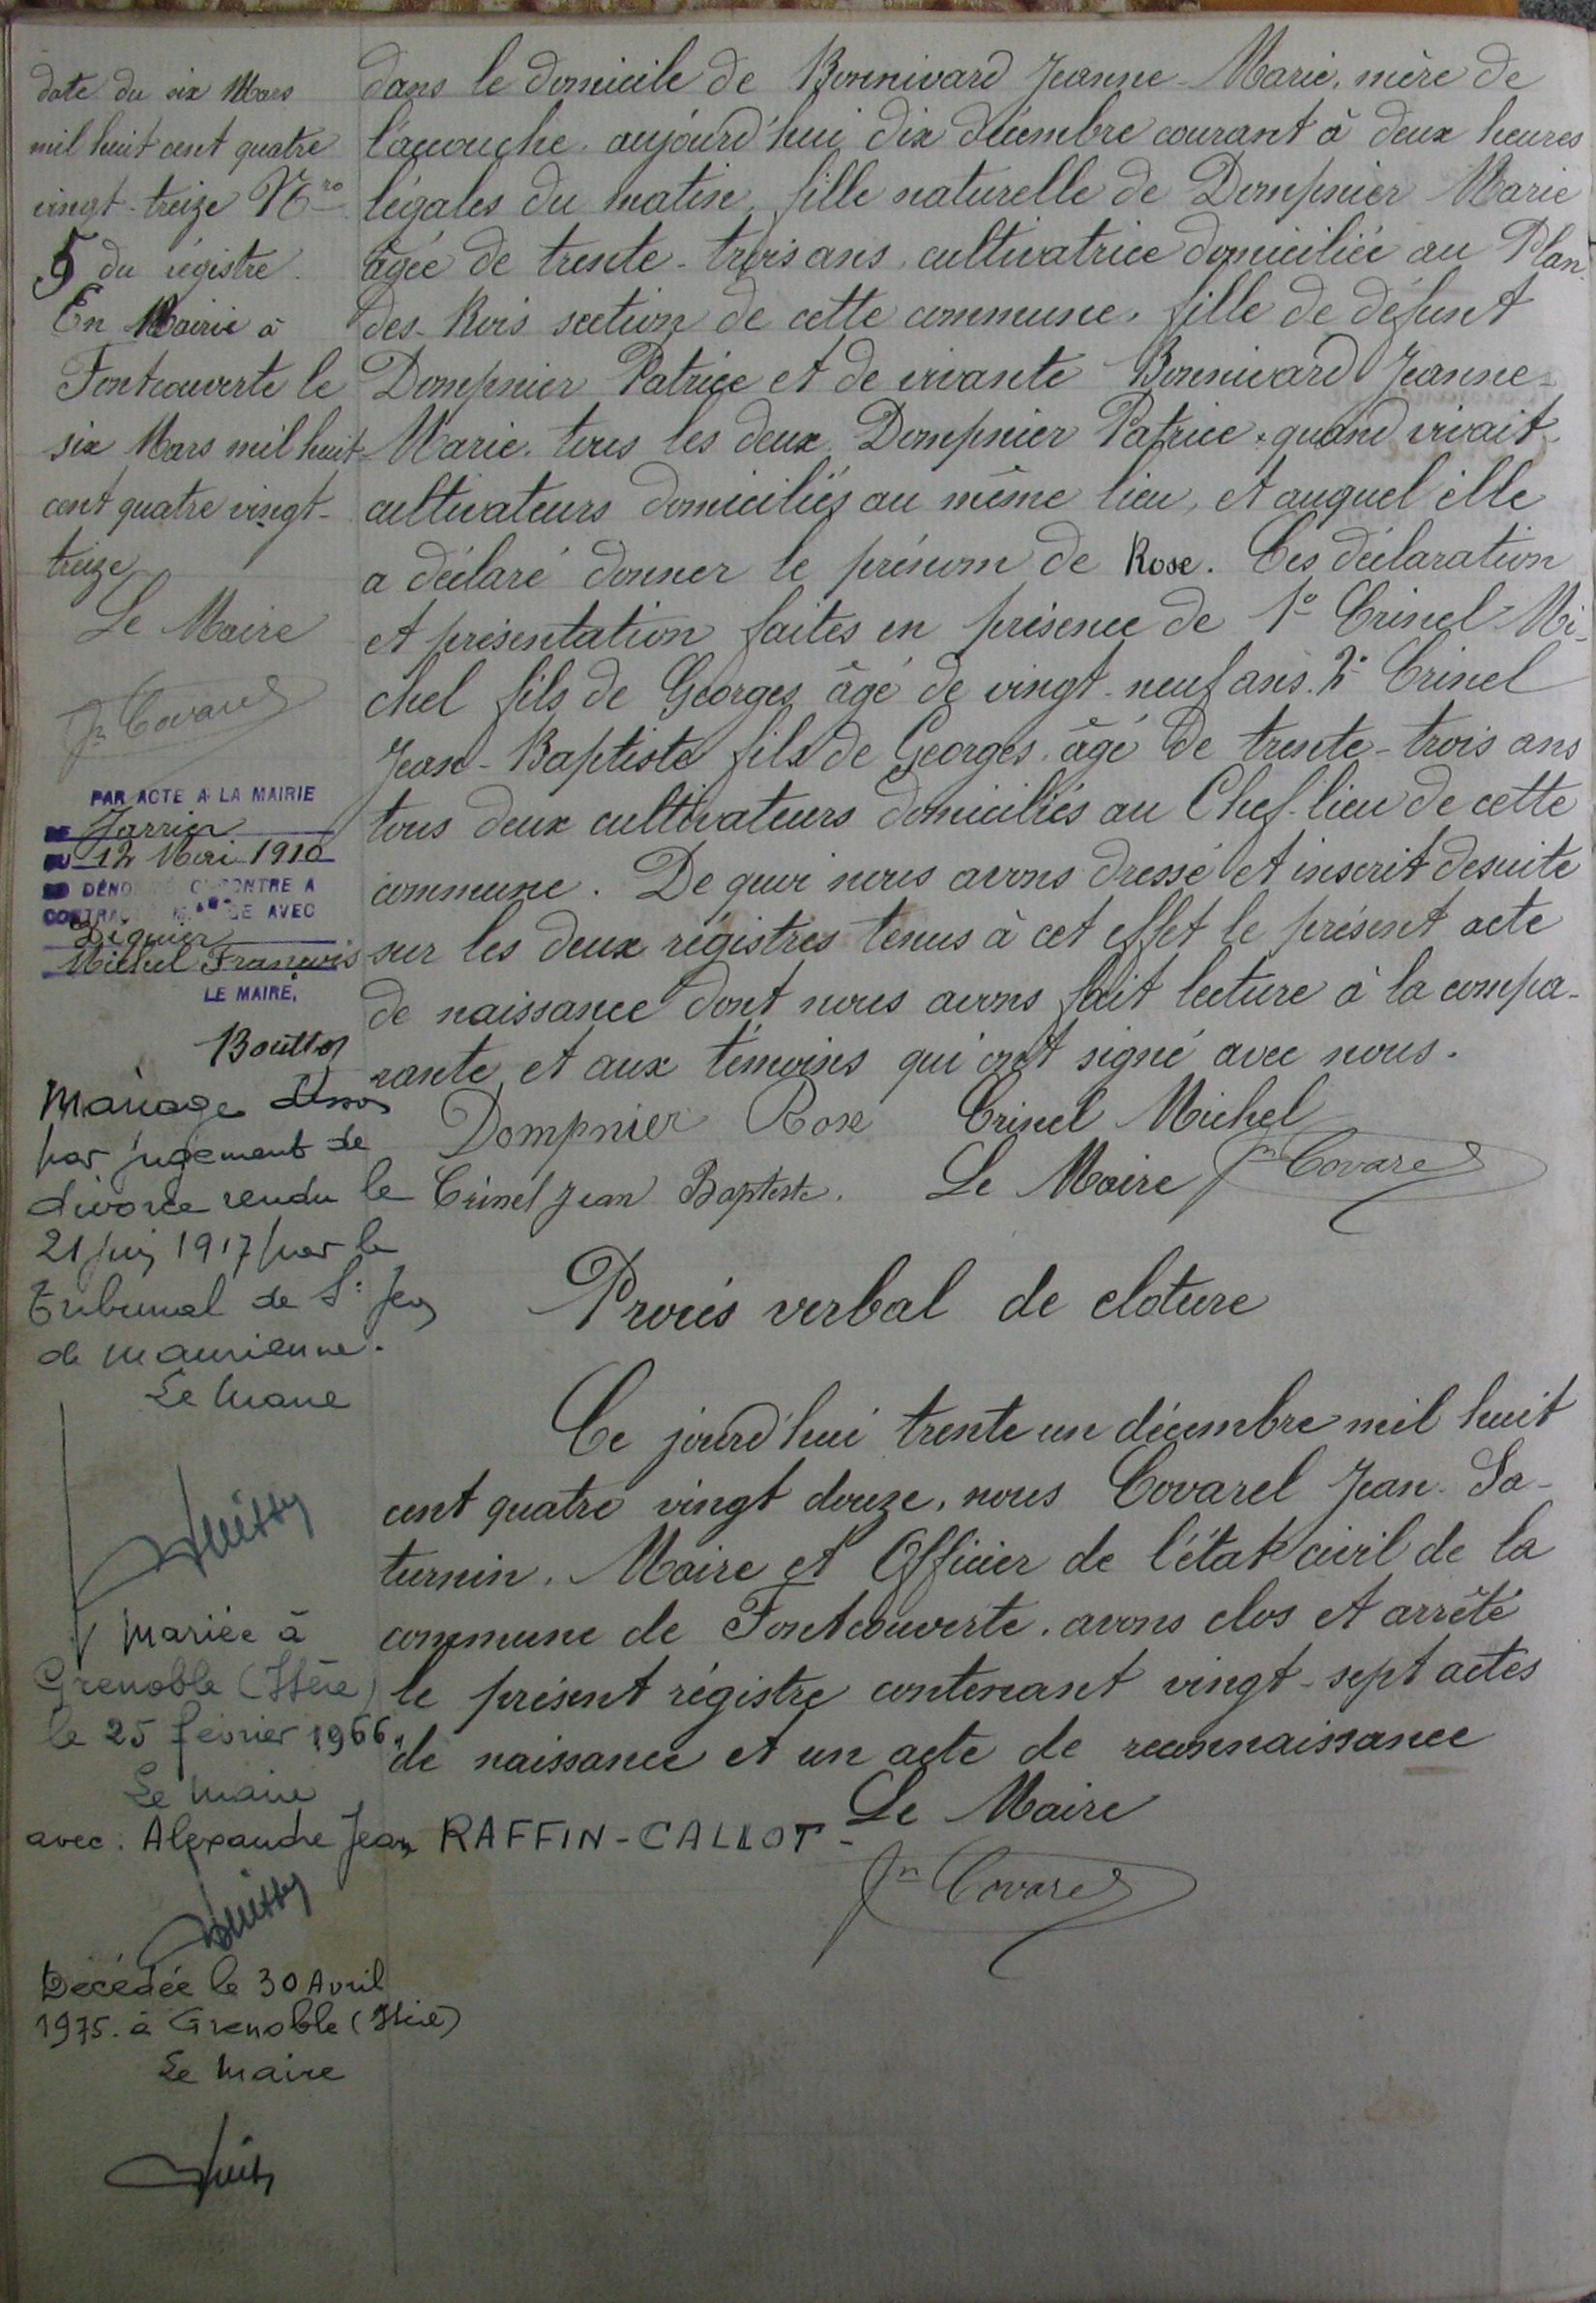 date du six Mars
mil huit cent quatre
vingt-treize Nro
5 du régistre.
En Mairie à
Fontcouverte le
six Mars mil huit
cent quatre vingt-
treize
Le Maire
Jn Covarel
PAR ACTE A LA MAIRIE
DE Jarrier
DU 12 Mai 1910
CONTRE A
AVEC
Michel François
LE MAIRE,
Mariage dissous
par jugement de
divorce rendu le
21 juin 1917 par le
Tribunal de St Jean
de Maurienne.
Le Maire
Mariée à
Grenoble (Isère)
le 25 février 1966.
Le Maire
avec: Alexandre Jean RAFFIN-CALLOT-
Décédée le 30 Avril
1975. à Grenoble (Isère)
Le Maire
dans le domicile de Bonnivard Jeanne-Marie, mère de
l'accouchée, aujourd'hui dix décembre courant à deux heures
légales du matin, fille naturelle de Dompnier Marie
âgée de trente-trois ans, cultivatrice domiciliée au Plan-
des-Rois section de cette commune, fille de défunt
Dompnier Patrice et de vivante Bonnivard Jeanne-
Marie, tous les deux, Dompnier Patrice quand vivait
cultivateurs domiciliés au même lieu, et auquel elle
a déclaré donner le prénom de Rose. Ces déclaration
et présentation faites en présence de 1º Crinel Mi-
chel fils de Georges âgé de vingt-neuf ans. 2º Crinel
Jean-Baptiste fils de Georges, âgé de trente-trois ans
tous deux cultivateurs domiciliés au Chef-lieu de cette
commune. De quoi nous avons dressé et inscrit desuite
sur les deux régistres tenus à cet effet le présent acte
de naissance dont nous avons fait lecture à la compa-
rante et aux témoins qui ont signé avec nous.
Dompnier Rose Crinel Michel
Crinel Jean Baptiste. Le Maire Jn Covarel
Procès verbal de cloture
Ce jourd'hui trente un décembre mil huit
cent quatre vingt douze, nous Covarel Jean-Sa-
turnin, Maire et Officier de l'état civil de la
commune de Fontcouverte, avons clos et arrêté
le présent régistre contenant vingt-sept actes
de naissance et un acte de reconnaissance
Le Maire
Jn Covarel